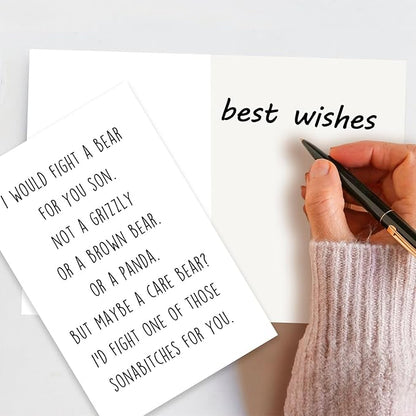 best wishes
I WOULD FIGHT A BEAR
FOR YOU SON.
NOT A GRIZZLY
OR A BROWN BEAR.
OR A PANDA.
BUT MAYBE A CARE BEAR?
I'D FIGHT ONE OF THOSE
SONABITCHES FOR YOU.